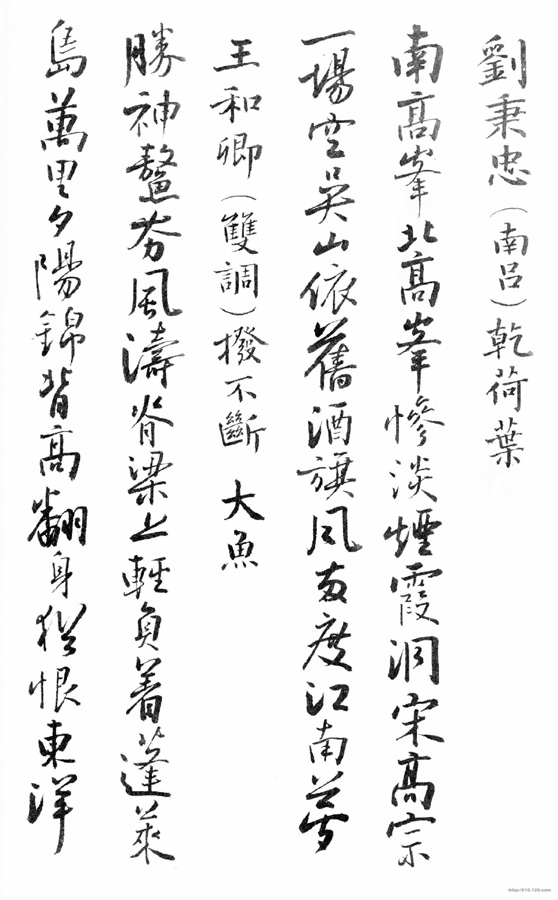 劉秉忠(南呂)乾荷葉
南高峯北高峯慘淡煙霞洞宋高宗
一場空吳山依舊酒旗風兩度江南夢
王和卿(雙調)撥不斷 大魚
勝神鰲夯風濤脊梁上輕負着蓬萊
島萬里夕陽錦背高翻身猶恨東洋
http://010.120.com